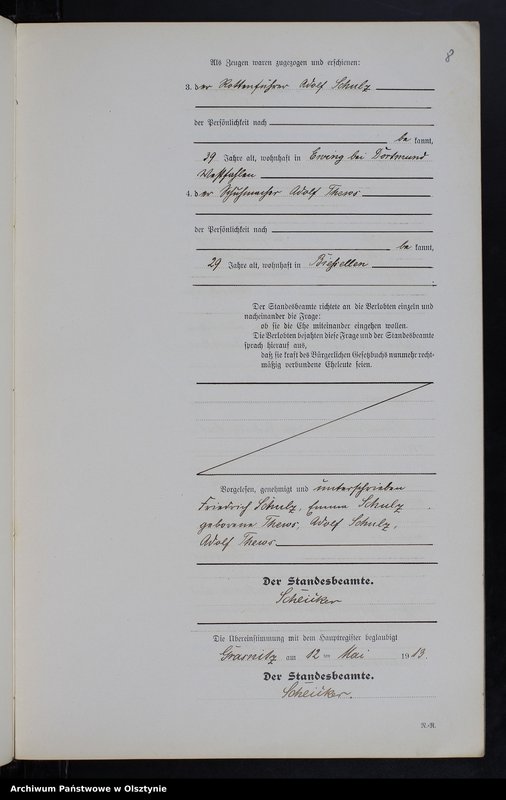 8
Als Zeugen waren zugezogen und erschienen:
3. der Rottenführer Adolf Schulz
der Persönlichkeit nach
be kannt,
39 Jahre alt, wohnhaft in Eving bei Dortmund
Westfahlen
4. der Schuhmacher Adolf Thews
der Persönlichkeit nach
be kannt,
29 Jahre alt, wohnhaft in Biessellen
Der Standesbeamte richtete an die Verlobten einzeln und
nacheinander die Frage:
ob sie die Ehe miteinander eingehen wollen.
Die Verlobten bejahten diese Frage und der Standesbeamte
sprach hierauf aus,
daß sie kraft des Bürgerlichen Gesetzbuchs nunmehr recht-
mäßig verbundene Eheleute seien.
Vorgelesen, genehmigt und unterschrieben
Friedrich Schulz, Emma Schulz
geborene Thews, Adolf Schulz,
Adolf Thews
Der Standesbeamte.
Die Übereinstimmung mit dem Hauptregister beglaubigt
Grasnitz am 12 ten Mai 1913.
Der Standesbeamte.
N.-R.
Archiwum Państwowe w Olsztynie